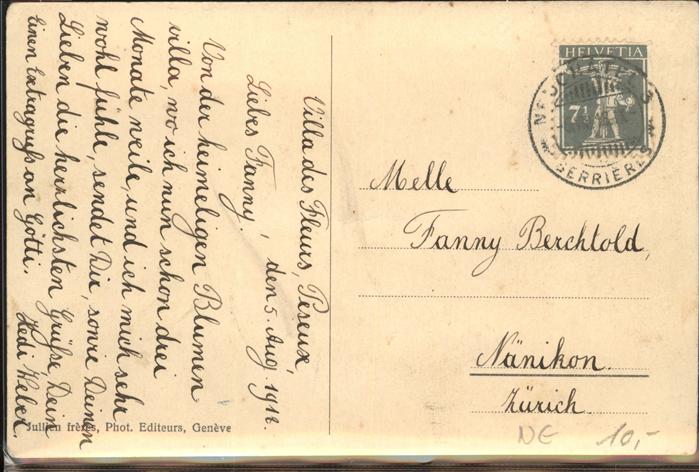 Villa des Fleurs Peseux,
den 5. Aug. 1918.
Liebes Fanny!
Von der heimeligen Blumen
villa, wo ich nun schon drei
Monate weile, und ich mich sehr
wohl fühle, sendet Dir, sowie Deinen
Lieben die herrlichsten Grüße Deine
Hedi Weber.
Einen Extragruß an Götti.
Jullien frères, Phot. Editeurs, Genève
HELVETIA
7½
NEUCHATEL 3
SERRIÈRES
Melle
Fanny Berchtold,
Nänikon.
Zürich.
NE 10,-